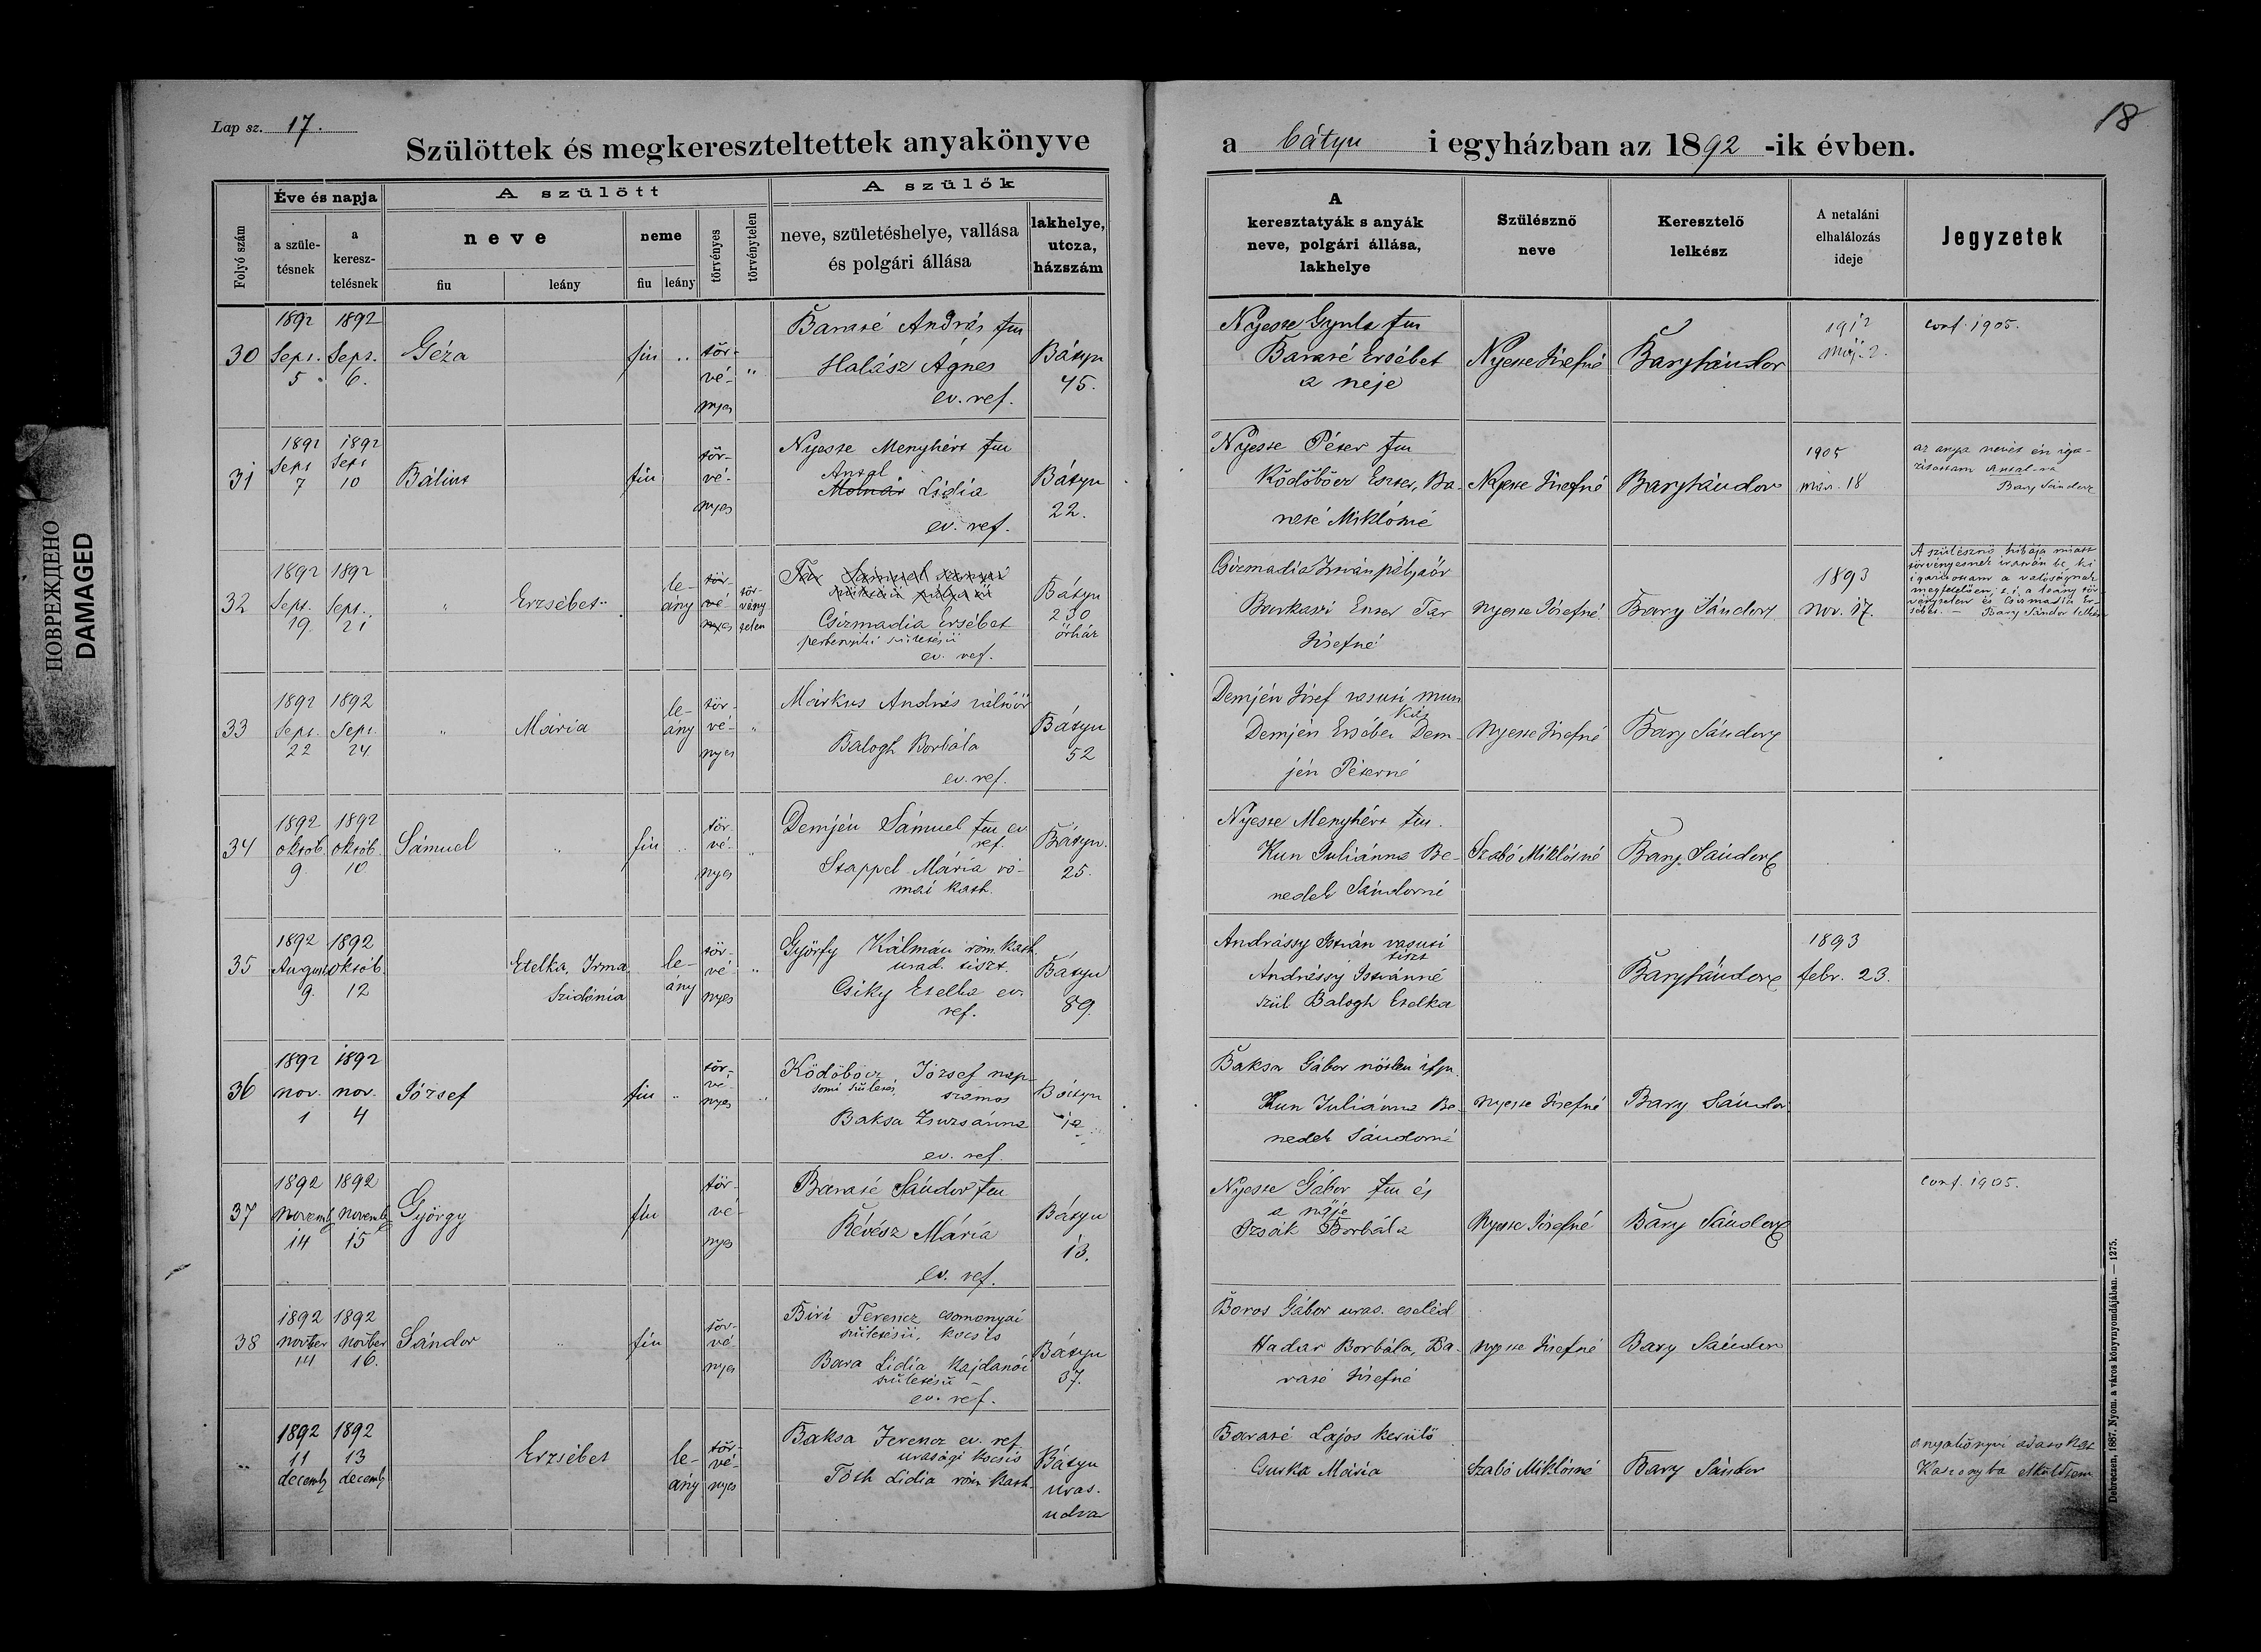 Lap sz. 17.
18
Szülöttek és megkereszteltettek anyakönyve
a bátyu i egyházban az 1892 -ik évben.
ПОВРЕЖДЕНО
DAMAGED
Folyó szám
Éve és napja
a születésnek
a keresztelésnek
A szülött
neve
fiu
leány
neme
fiu
leány
törvényes
törvénytelen
A szülők
neve, születéshelye, vallása
és polgári állása
lakhelye,
utcza,
házszám
A
keresztatyák s anyák
neve, polgári állása,
lakhelye
Szülésznő
neve
Keresztelő
lelkész
A netaláni
elhalálozás
ideje
Jegyzetek
30
1892 Sept. 5
1892 Sept. 6.
Géza
fiu
tör-
vé-
nyes
Baraté András fm
Halász Ágnes
ev. ref.
Bátyu
45.
Nyeste Gyula fm
Baraté Ersébet
a neje
Nyeste Józsefné
Bary Sándor
1912
máj. 2.
conf. 1905.
31
1892 Sept 7
1892 Sept 10
Bálint
fiu
tör-
vé-
nyes
Nyeste Menyhért fm
Antal
Molnár Lidia
ev. ref.
Bátyu
22.
Nyeste Péter fm
Ködöböcz Eszter, Ba-
Miklósné
Nyeste Józsefné
Bary Sándor
1905
már. 18
az anya nevét én iga-
zitottam Antal-ra
Bary Sándor
32
1892 Sept. 19
1892 Sept. 21
Erzsébet
le-
ány
tör-
vé-
nyes
tör-
vény-
telen
Csizmadia Ersébet
születésü
ev. ref.
Bátyu
230
őrház
Csizmadia István pályaőr
Eszter Tar
Józsefné
Nyeste Józsefné
Bary Sándor
1893
nov. 17.
A szülésznő hibája miatt
törvényesnek irtam be, ki
igazitottam a valóságnak
megfelelően, t. i. a leány tör-
vénytelen és Csizmadia Er-
sébet. – Bary Sándor lelkész
33
1892 Sept. 22
1892 Sept. 24
Mária
le-
ány
tör-
vé-
nyes
Márkus András váltóőr
Balogh Borbála
ev. ref.
Bátyu
52
Demjén József vasuti mun
kás
Demjén Ersébet Dem-
jén Péterné
Nyeste Józsefné
Bary Sándor
34
1892 októb. 9
1892 októb. 10
Sámuel
fiu
tör-
vé-
nyes
Demjén Sámuel fm ev.
ref.
Stappel Mária ró-
mai kath.
Bátyu.
25.
Nyeste Menyhért fm.
Kun Juliánna Be-
nedek Sándorné
Szabó Miklósné
Bary Sándor
35
1892 August 9.
1892 októb. 12
Etelka, Irma
Szidónia
le-
ány
tör-
vé-
nyes
Györfy Kálmán róm. kath.
urad. tiszt.
Csiky Etelka ev.
ref.
Bátyu
89.
Andrássy István vasuti
tiszt
Andrássy Istvánné
szül Balogh Etelka
Bary Sándor
1893
febr. 23.
36
1892 nov. 1
1892 nov. 4
József
fiu
tör-
vé-
nyes
Ködöböcz József nap-
számos
Baksa Zsuzsánna
ev. ref.
Bátyu
Baksa Gábor nőtlen ifju.
Kun Juliánna Be-
nedek Sándorné
Nyeste Józsefné
Bary Sándor
37
1892 novemb 14
1892 novemb 15
György
fiu
tör-
vé-
nyes
Baraté Sándor fm
Révész Mária
ev. ref.
Bátyu
13.
Nyeste Gábor fm és
a nője
Izsák Borbála
Nyeste Józsefné
Bary Sándor
conf. 1905.
38
1892 novber 14
1892 novber 16.
Sándor
fiu
tör-
vé-
nyes
Biri Ferencz csomonyai
születésü, kocsis
Bara Lidia kajdanói
születésü
ev. ref.
Bátyu
37.
Boros Gábor uras. cseléd
Hadar Borbála, Ba-
raté Józsefné
Nyeste Józsefné
Bary Sándor
1892 11 decemb
1892 13 decemb
Erzsébet
le-
ány
tör-
vé-
nyes
Baksa Ferencz ev. ref.
urasági kocsis
Tóth Lidia róm. kath.
Bátyu
uras.
udvar
Baraté Lajos kerülő
Csurka Mária
Szabó Miklósné
Bary Sándor
anyakönyvi adatokat
Kaszonyba elküldtem
Debreczen, 1887. Nyom. a város könyvnyomdájában. — 1275.